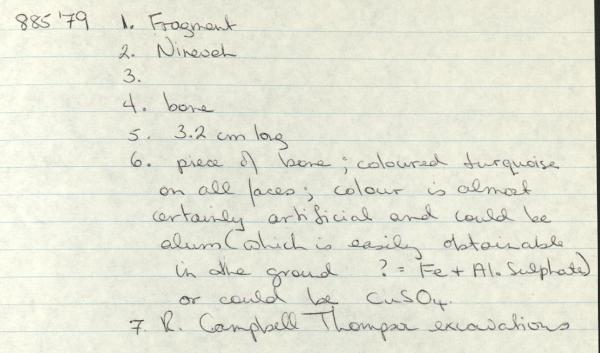 885'79 1. Fragment
2. Nineveh
3.
4. bone
5. 3.2 cm long
6. piece of bone; coloured turquoise
on all faces; colour is almost
certainly artificial and could be
alum (which is easily obtainable
in the ground ? = Fe + Al. Sulphate)
or could be CuSO4.
7. R. Campbell Thompson excavations